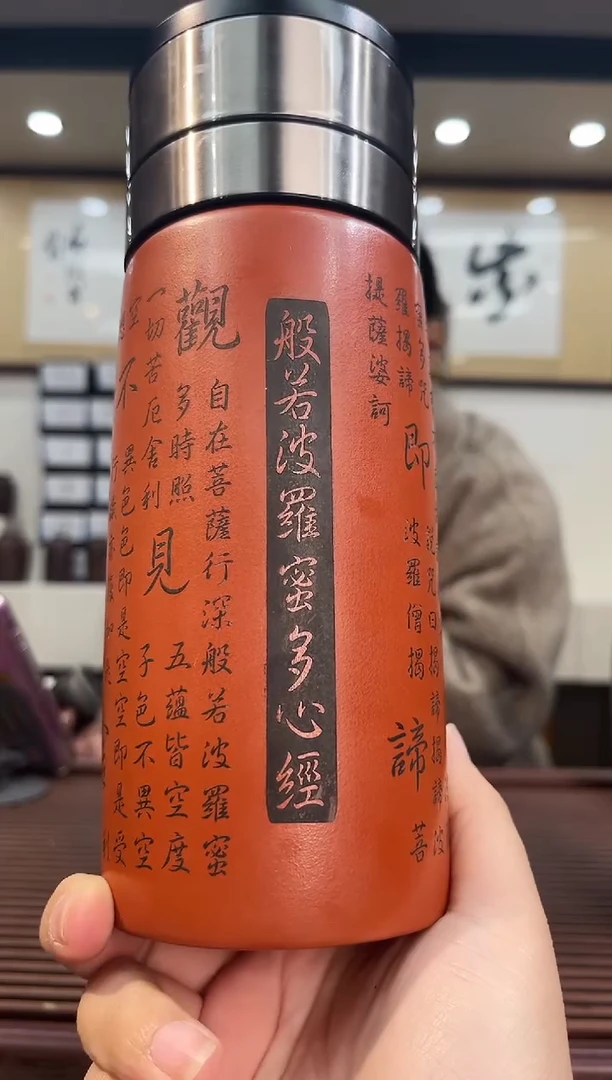 般若波羅蜜多心經
觀自在菩薩行深般若波羅蜜
多時照見五蘊皆空度
一切苦厄舍利子色不異空
不異色色即是空空即是受
蜜多咒即說咒曰揭諦揭諦波
羅揭諦波羅僧揭諦菩
提薩婆訶